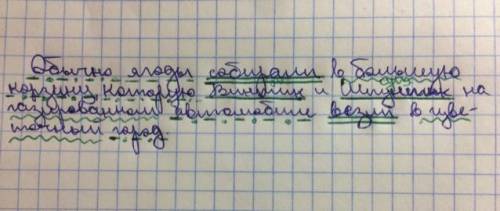 Обычно ягоды собирали в большую
корзину которую Винтик и Шпунтик на
газированном автомобиле везут в цве-
точный город.